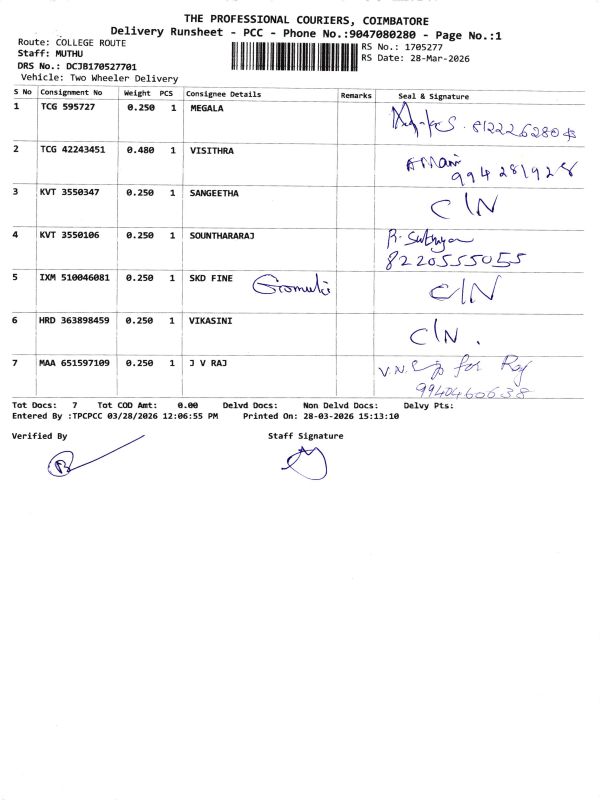 THE PROFESSIONAL COURIERS, COIMBATORE
Delivery Runsheet - PCC - Phone No.:9047080280 - Page No.:1
Route: COLLEGE ROUTE
Staff: MUTHU
DRS No.: DCJB170527701
Vehicle: Two Wheeler Delivery
RS No.: 1705277
RS Date: 28-Mar-2026
S No Consignment No Weight PCS Consignee Details Remarks Seal & Signature
1 TCG 595727 0.250 1 MEGALA
8122262804
2 TCG 42243451 0.480 1 VISITHRA
994281928
3 KVT 3550347 0.250 1 SANGEETHA C/N
4 KVT 3550106 0.250 1 SOUNTHARARAJ
8220555055
5 IXM 510046081 0.250 1 SKD FINE C/N
6 HRD 363898459 0.250 1 VIKASINI C/N.
7 MAA 651597109 0.250 1 J V RAJ V.N. for Raj
9940460638
Tot Docs: 7 Tot COD Amt: 0.00 Delvd Docs: Non Delvd Docs: Delvy Pts:
Entered By :TPCPCC 03/28/2026 12:06:55 PM Printed On: 28-03-2026 15:13:10
Verified By Staff Signature